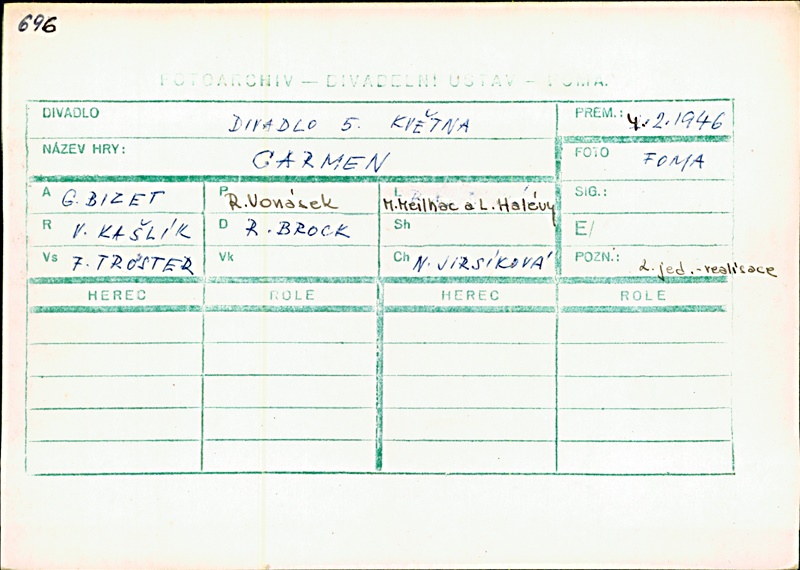 696
FOTOARCHIV — DIVADELNÍ ÚSTAV — FOMA
DIVADLO DIVADLO 5. KVĚTNA PREM.: 4.2.1946
NÁZEV HRY: CARMEN FOTO FOMA
A G. BIZET P R. Vonásek L M. Meilhac a L. Halévy SIG.:
R V. KAŠLÍK D R. BROCK Sh E/
Vs F. TRÖSTER Vk Ch N. JIRSÍKOVÁ POZN.: 2. jed. - realisace
HEREC ROLE HEREC ROLE